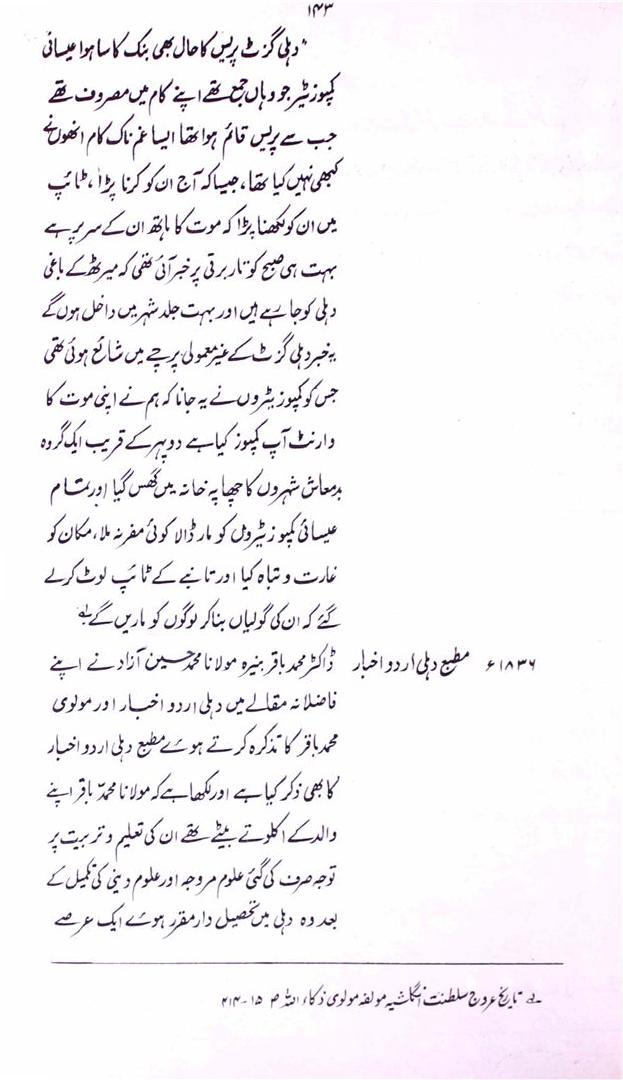 ۱۴۳
"دہلی گزٹ پریس کا حال بھی بنک کا سا ہوا عیسائی
کمپوزیٹر جو وہاں جمع تھے اپنے کام میں مصروف تھے
جب سے پریس قائم ہوا تھا ایسا غم ناک کام انھوں نے
کبھی نہیں کیا تھا، جیسا کہ آج ان کو کرنا پڑا، ٹائپ
میں ان کو لکھنا پڑا کہ موت کا ہاتھ ان کے سر پر ہے
بہت ہی صبح کو تار برقی پر خبر آئی تھی کہ میرٹھ کے باغی
دہلی کو جا رہے ہیں اور بہت جلد شہر میں داخل ہوں گے
یہ خبر دہلی گزٹ کے غیر معمولی پرچے میں شائع ہوئی تھی
جس کو کمپوزیٹروں نے یہ جانا کہ ہم نے اپنی موت کا
وارنٹ آپ کمپوز کیا ہے دوپہر کے قریب ایک گروہ
بدمعاش شہروں کا چھاپہ خانہ میں گھس گیا اور تمام
عیسائی کمپوزیٹروں کو مار ڈالا کوئی مفر نہ ملا، مکان کو
غارت و تباہ کیا اور تانبے کے ٹائپ لوٹ کر لے
گئے کہ ان کی گولیاں بنا کر لوگوں کو ماریں گے لے
۱۸۳۶ء مطبع دہلی اردو اخبار ڈاکٹر محمد باقر نبیرہ مولانا محمد حسین آزاد نے اپنے
فاضلانہ مقالے میں دہلی اردو اخبار اور مولوی
محمد باقر کا تذکرہ کرتے ہوئے مطبع دہلی اردو اخبار
کا بھی ذکر کیا ہے اور لکھا ہے کہ مولانا محمد باقر اپنے
والد کے اکلوتے بیٹے تھے ان کی تعلیم و تربیت پر
توجہ صرف کی گئی علوم مروجہ اور علوم دینی کی تکمیل کے
بعد وہ دہلی میں تحصیل دار مقرر ہوئے ایک عرصے
لے تاریخ عروج سلطنت انگلشیہ مولفہ مولوی ذکاء اللہ ص ۱۵-۴۱۴